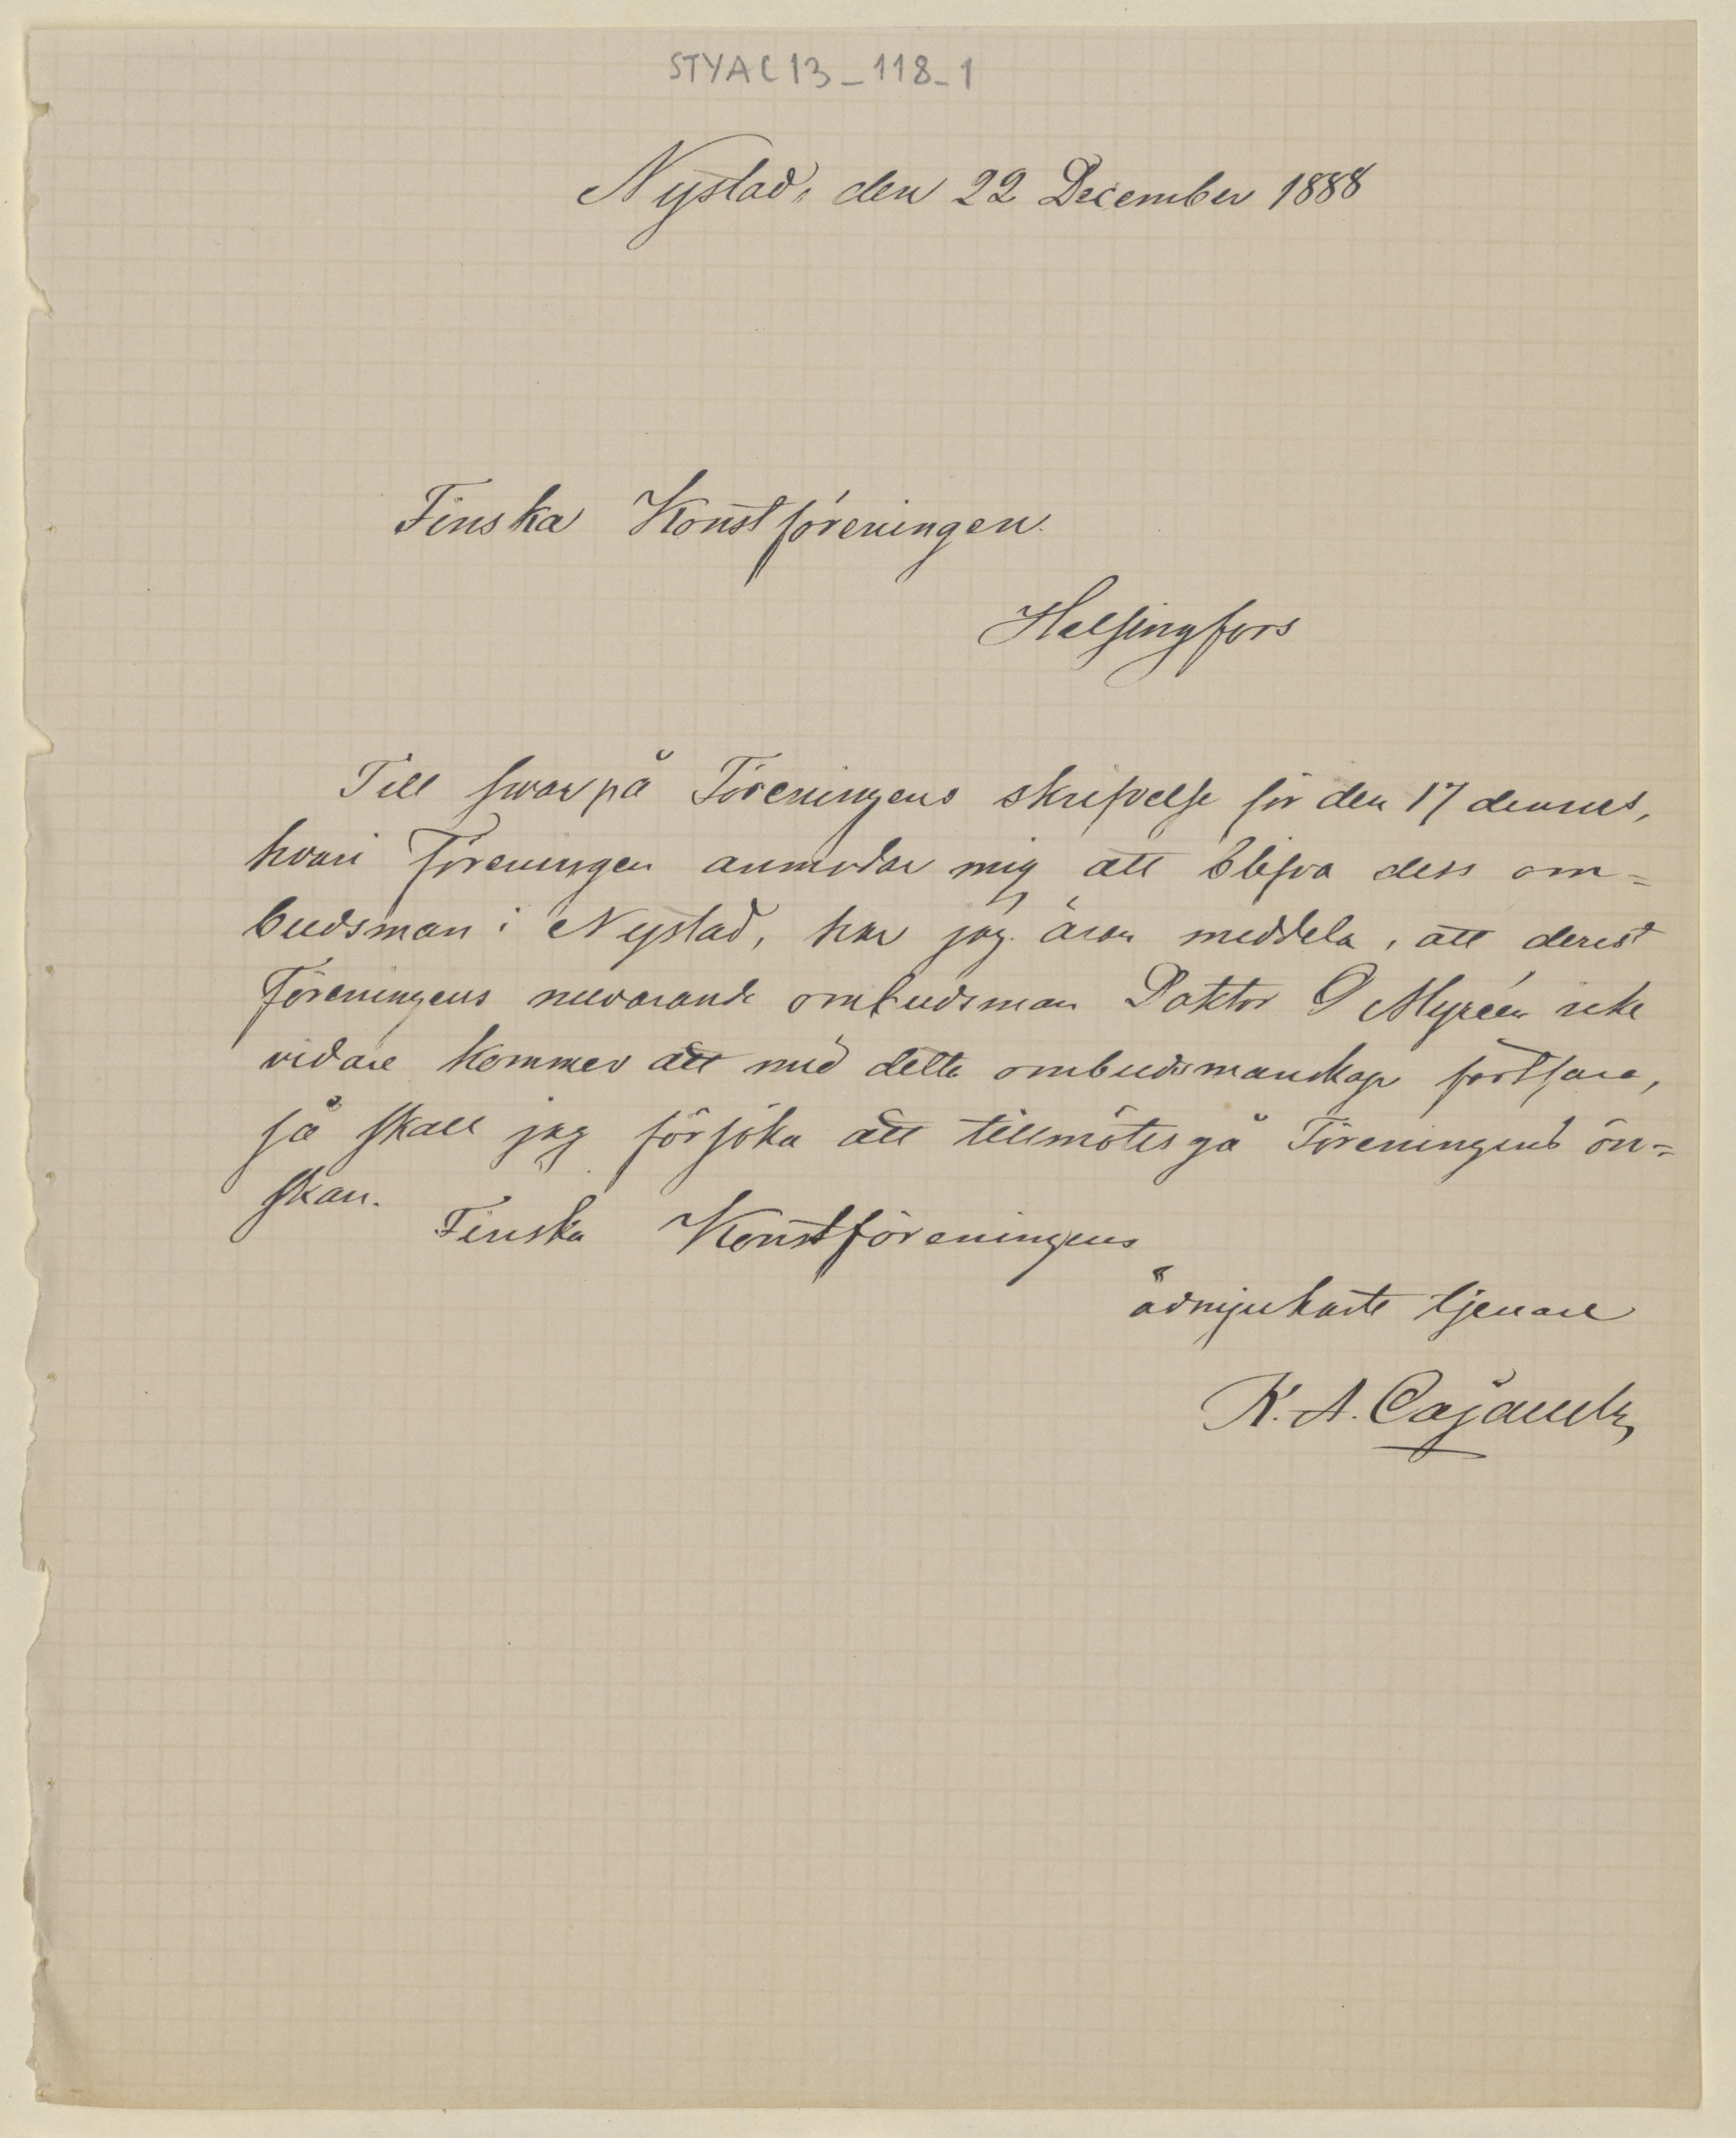 STYA C 13_118_1
Nystad, den 22 December 1888
Finska Konstföreningen.
Helsingfors
Till svar på Föreningens skrifvelse för den 17 dennes,
hvari Föreningen anmodar mig att blifva dess om=
budsman i Nystad, har jag äran meddela, att derest
Föreningens nuvarande ombudsman Doktor O Myréen icke
vidare kommer att med detta ombudsmanskap fortfara,
så skall jag försöka att tillmötesgå Föreningens ön=
skan.
Finska Konstföreningens
ödmjukaste tjenare
K. A. Cajander